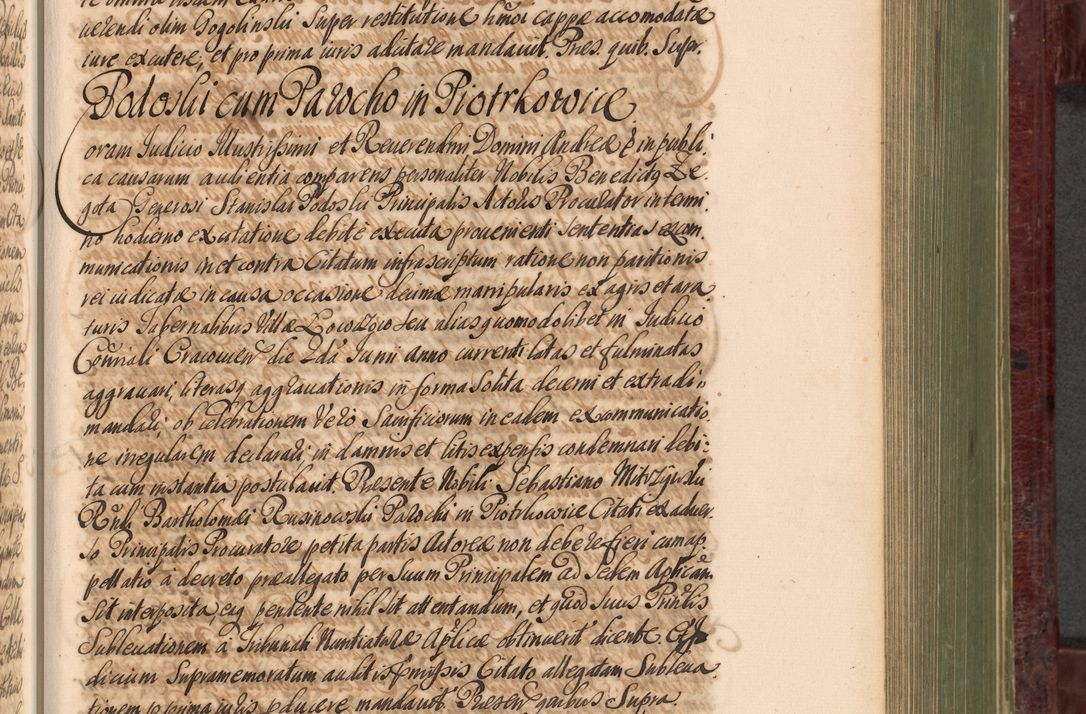 uerendi olim Gogolinski super restitutione hm̃oi cappæ accomodatæ
iure excutere, et pro prima iuris ad citare mandauit. Pres. quib. Supr.
Podoski cum Parocho in Piotrkowice
oram Iudicio Illustrissimi et Reuerendmi Domini Andreæ & in publi
ca causarum audientia comparens personaliter Nobilis Benedictg Ze
gota Generosi Stanislai Podoski Principalis Actoris Procurator in termi
no hodierno ex citatione debite executa prouenienti sententias exam
municationis in et contra Citatum infrascriptum ratione non paritionis
rei iudicatæ in causa occasione decimæ manipularis ex agris et ara
turis Tabernalibus Villæ seu alias quomodolibet in Iudicio
Conriali Cracouien die 2da Iunii anno currenti latas et fulminatas
aggrauari, literasq aggrauationis in forma solita decerni et extradi
mandari, ob celebrationem Vero Sacrificiorum in eadem excommunicatio
ne irregularem declarari, in damnis et litis expensis condemnari debi
ta cum instantia postulauit. Presente Nobili Sebastiano
Rndi Bartholomæi Rusinowski Parochi in Piotrkowice Citati ex aduer
so Principalis Procuratore petita partis Actoreæ non debere fieri cum ap
pellatio à decreto præallegato per suum Principalem ad Sedem Aplicam
sit interposita, eaq pendente nihil sit attentandum, et quod suus Prinlis
Subleuationem à Tribunali Nuntiaturæ Aplicæ obtinuerit dicente.
dicium Supramemoratum auditis præmissis Citato allegatam Subleua
tionem p prima iuris educere mandauit. Presen quibus Supra.